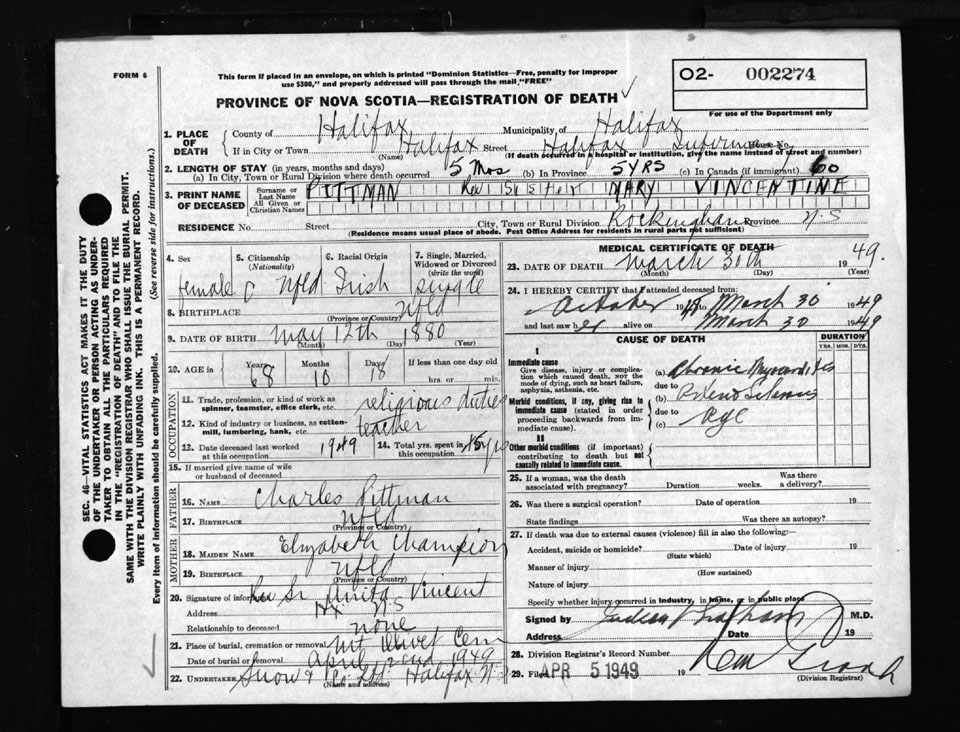 FORM 6
This form if placed in an envelope, on which is printed "Dominion Statistics—Free, penalty for improper
use $300," and properly addressed will pass through the mail "FREE"
O2- 002274
For use of the Department only
PROVINCE OF NOVA SCOTIA—REGISTRATION OF DEATH
1. PLACE OF DEATH
County of Halifax Municipality of Halifax
If in City or Town Halifax Street Halifax Infirmary House No.
(Name) (If death occurred in a hospital or institution, give the name instead of street and number)
2. LENGTH OF STAY (in years, months and days)
(a) In City, Town or Rural Division where death occurred 5 Mos (b) In Province 5 YRS (c) In Canada (if immigrant) 60
3. PRINT NAME OF DECEASED
Surname or Last Name PITTMAN Rev
All Given or Christian Names MARY VINCENTINE
RESIDENCE No. Street City, Town or Rural Division Rockingham Province N.S
(Residence means usual place of abode. Post Office Address for residents in rural parts not sufficient)
4. Sex female
5. Citizenship (Nationality) C Nfld
6. Racial Origin Irish
7. Single, Married, Widowed or Divorced (write the word) single
8. BIRTHPLACE Nfld
(Province or Country)
9. DATE OF BIRTH May 12th 1880
(Month) (Day) (Year)
20. AGE in Years 68 Months 10 Days 18 If less than one day old
hrs. or min.
OCCUPATION
11. Trade, profession, or kind of work as spinner, teamster, office clerk, etc. religious duties
12. Kind of industry or business, as cotton-mill, lumbering, bank, etc. teacher
13. Date deceased last worked at this occupation 1949
14. Total yrs. spent in this occupation 45 yrs
15. If married give name of wife or husband of deceased
FATHER
16. NAME Charles Pittman
17. BIRTHPLACE Nfld
(Province or Country)
MOTHER
18. MAIDEN NAME Elizabeth Champion
19. BIRTHPLACE Nfld
(Province or Country)
20. Signature of informant Rev Sr Anita Vincent
Address Hx N.S
Relationship to deceased none
21. Place of burial, cremation or removal Mt Olivet Cem
Date of burial or removal April 2nd 1949
22. UNDERTAKER Snow & Co Ltd. Halifax N.S
(Name and address)
MEDICAL CERTIFICATE OF DEATH
23. DATE OF DEATH March 30th 49.
(Month) (Day) (Year)
24. I HEREBY CERTIFY that I attended deceased from:
October 1948 to March 30 1949
and last saw her alive on March 30 1949
CAUSE OF DEATH
DURATION
YRS. MOS. DYS.
I
Immediate cause
Give disease, injury or complication which caused death, not the mode of dying, such as heart failure, asphyxia, asthenia, etc.
(a) Chronic Myocarditis
due to
Morbid conditions, if any, giving rise to immediate cause (stated in order proceeding backwards from immediate cause).
(b) Arterio Sclerosis
due to
(c) Age
II
Other morbid conditions (if important) contributing to death but not causally related to immediate cause.
25. If a woman, was the death associated with pregnancy? Duration weeks. Was there a delivery?
26. Was there a surgical operation? Date of operation 19
State findings Was there an autopsy?
27. If death was due to external causes (violence) fill in also the following:
Accident, suicide or homicide? Date of injury 19
(State which)
Manner of injury
(How sustained)
Nature of injury
Specify whether injury occurred in industry, in home, or in public place
Signed by M.D.
Address Date 19
28. Division Registrar's Record Number
29. Filed APR 5 1949 19
(Division Registrar)
SEC. 46—VITAL STATISTICS ACT MAKES IT THE DUTY
OF THE UNDERTAKER OR PERSON ACTING AS UNDERTAKER TO OBTAIN ALL THE PARTICULARS REQUIRED
IN THE "REGISTRATION OF DEATH" AND TO FILE THE
SAME WITH THE DIVISION REGISTRAR WHO SHALL ISSUE THE BURIAL PERMIT.
WRITE PLAINLY WITH UNFADING INK. THIS IS A PERMANENT RECORD.
Every item of information should be carefully supplied. (See reverse side for instructions.)